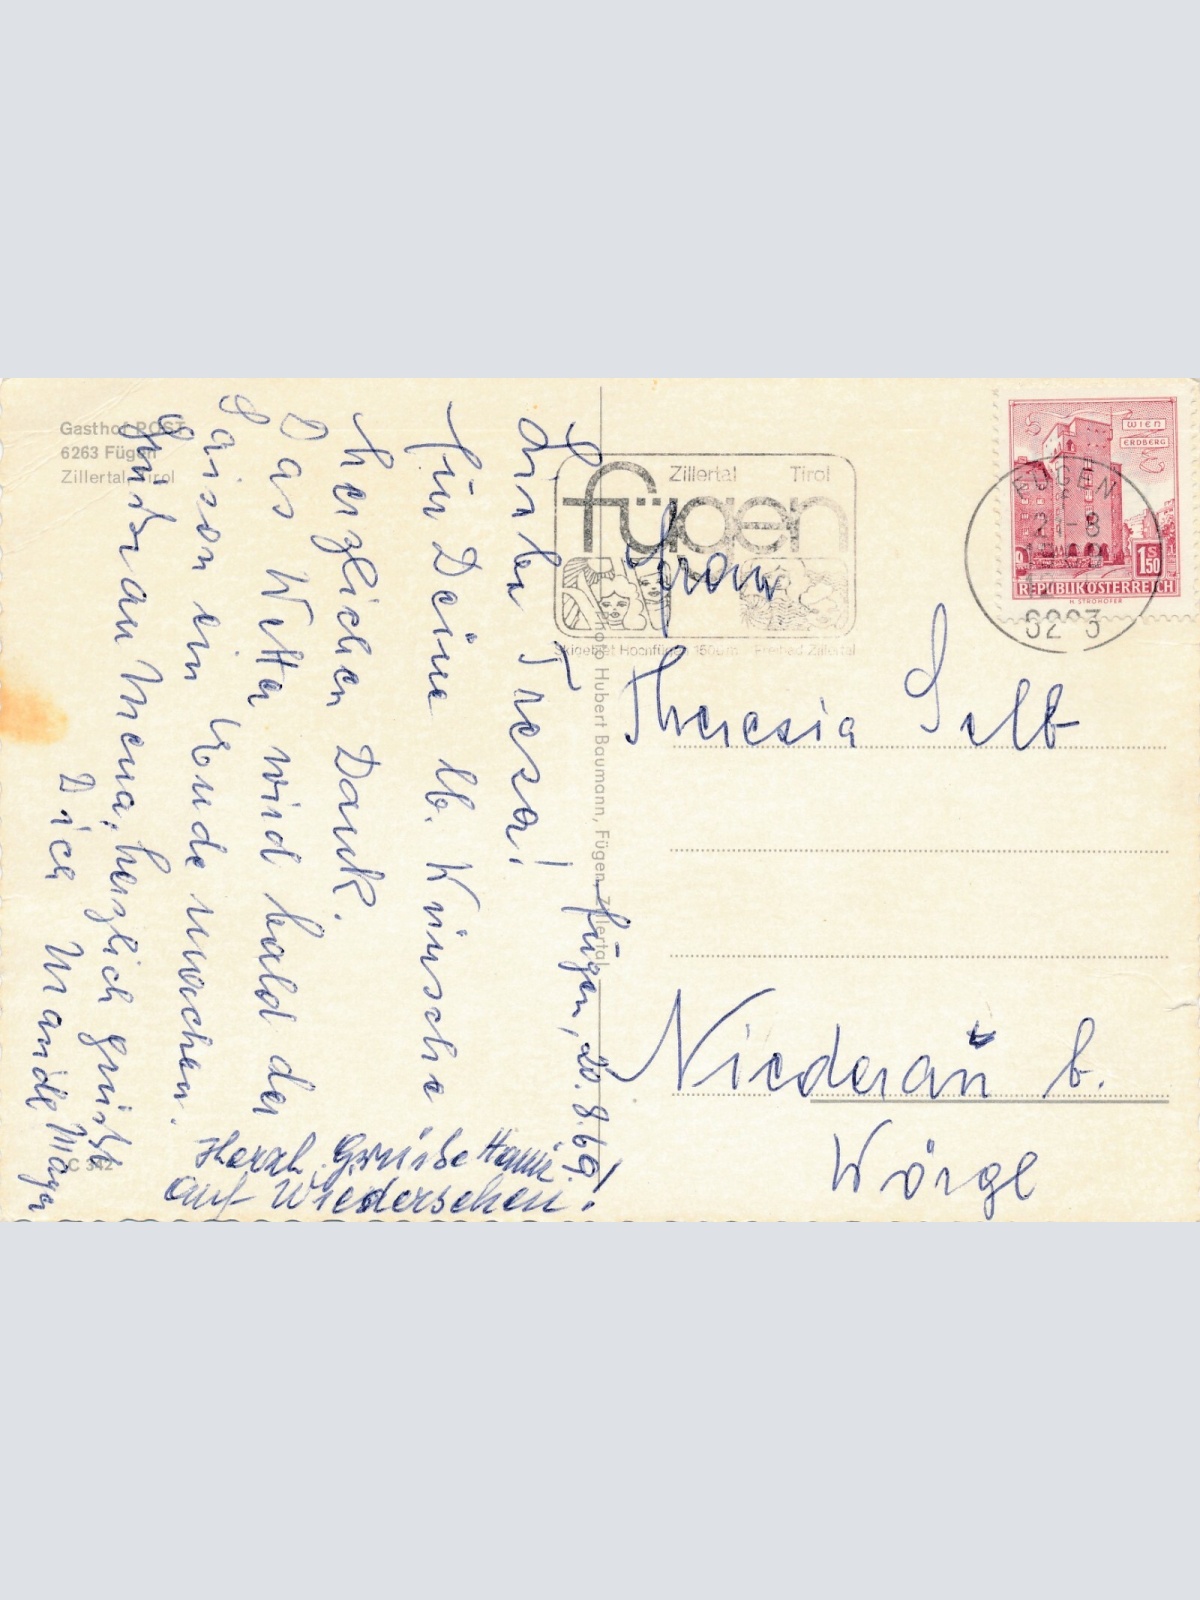 Gasthof POST
6263 Fügen
Zillertal Tirol
Fügen, 20.8.69
Liebe Tresa!
Für Deine lb. Wünsche
herzlichen Dank.
Das Wetter wird bald der
Saison ein Ende machen.
Grüße an Mena, herzlich grüßt
Dich
Herzl. Grüße Hanni
Auf Wiedersehen!
C 342
Photo Hubert Baumann, Fügen, Zillertal
Zillertal Tirol
fügen
Skigebiet Hochfügen 1500 m Freibad Zillertal
WIEN
ERDBERG
S
1.50
REPUBLIK ÖSTERREICH
H. STROHOFER
FÜGEN
21-8
6263
Frau
Theresia Selb
Niederau b.
Wörgl